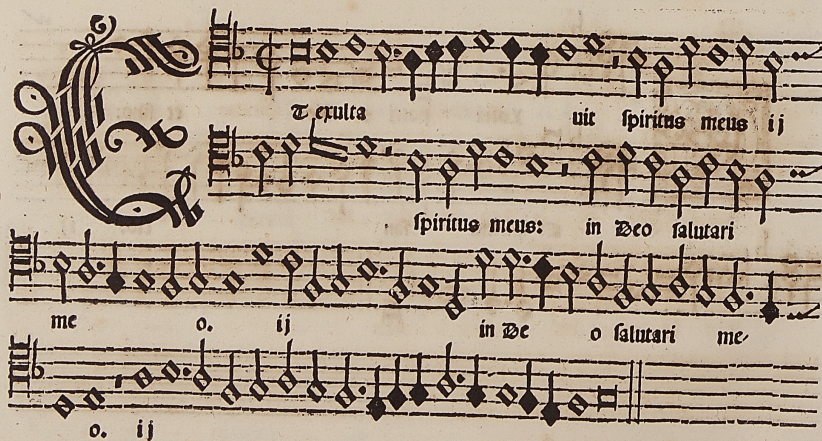 ET exultauit spiritus meus ij
spiritus meus: in Deo salutari
me o. ij in De o salutari me-
o. ij